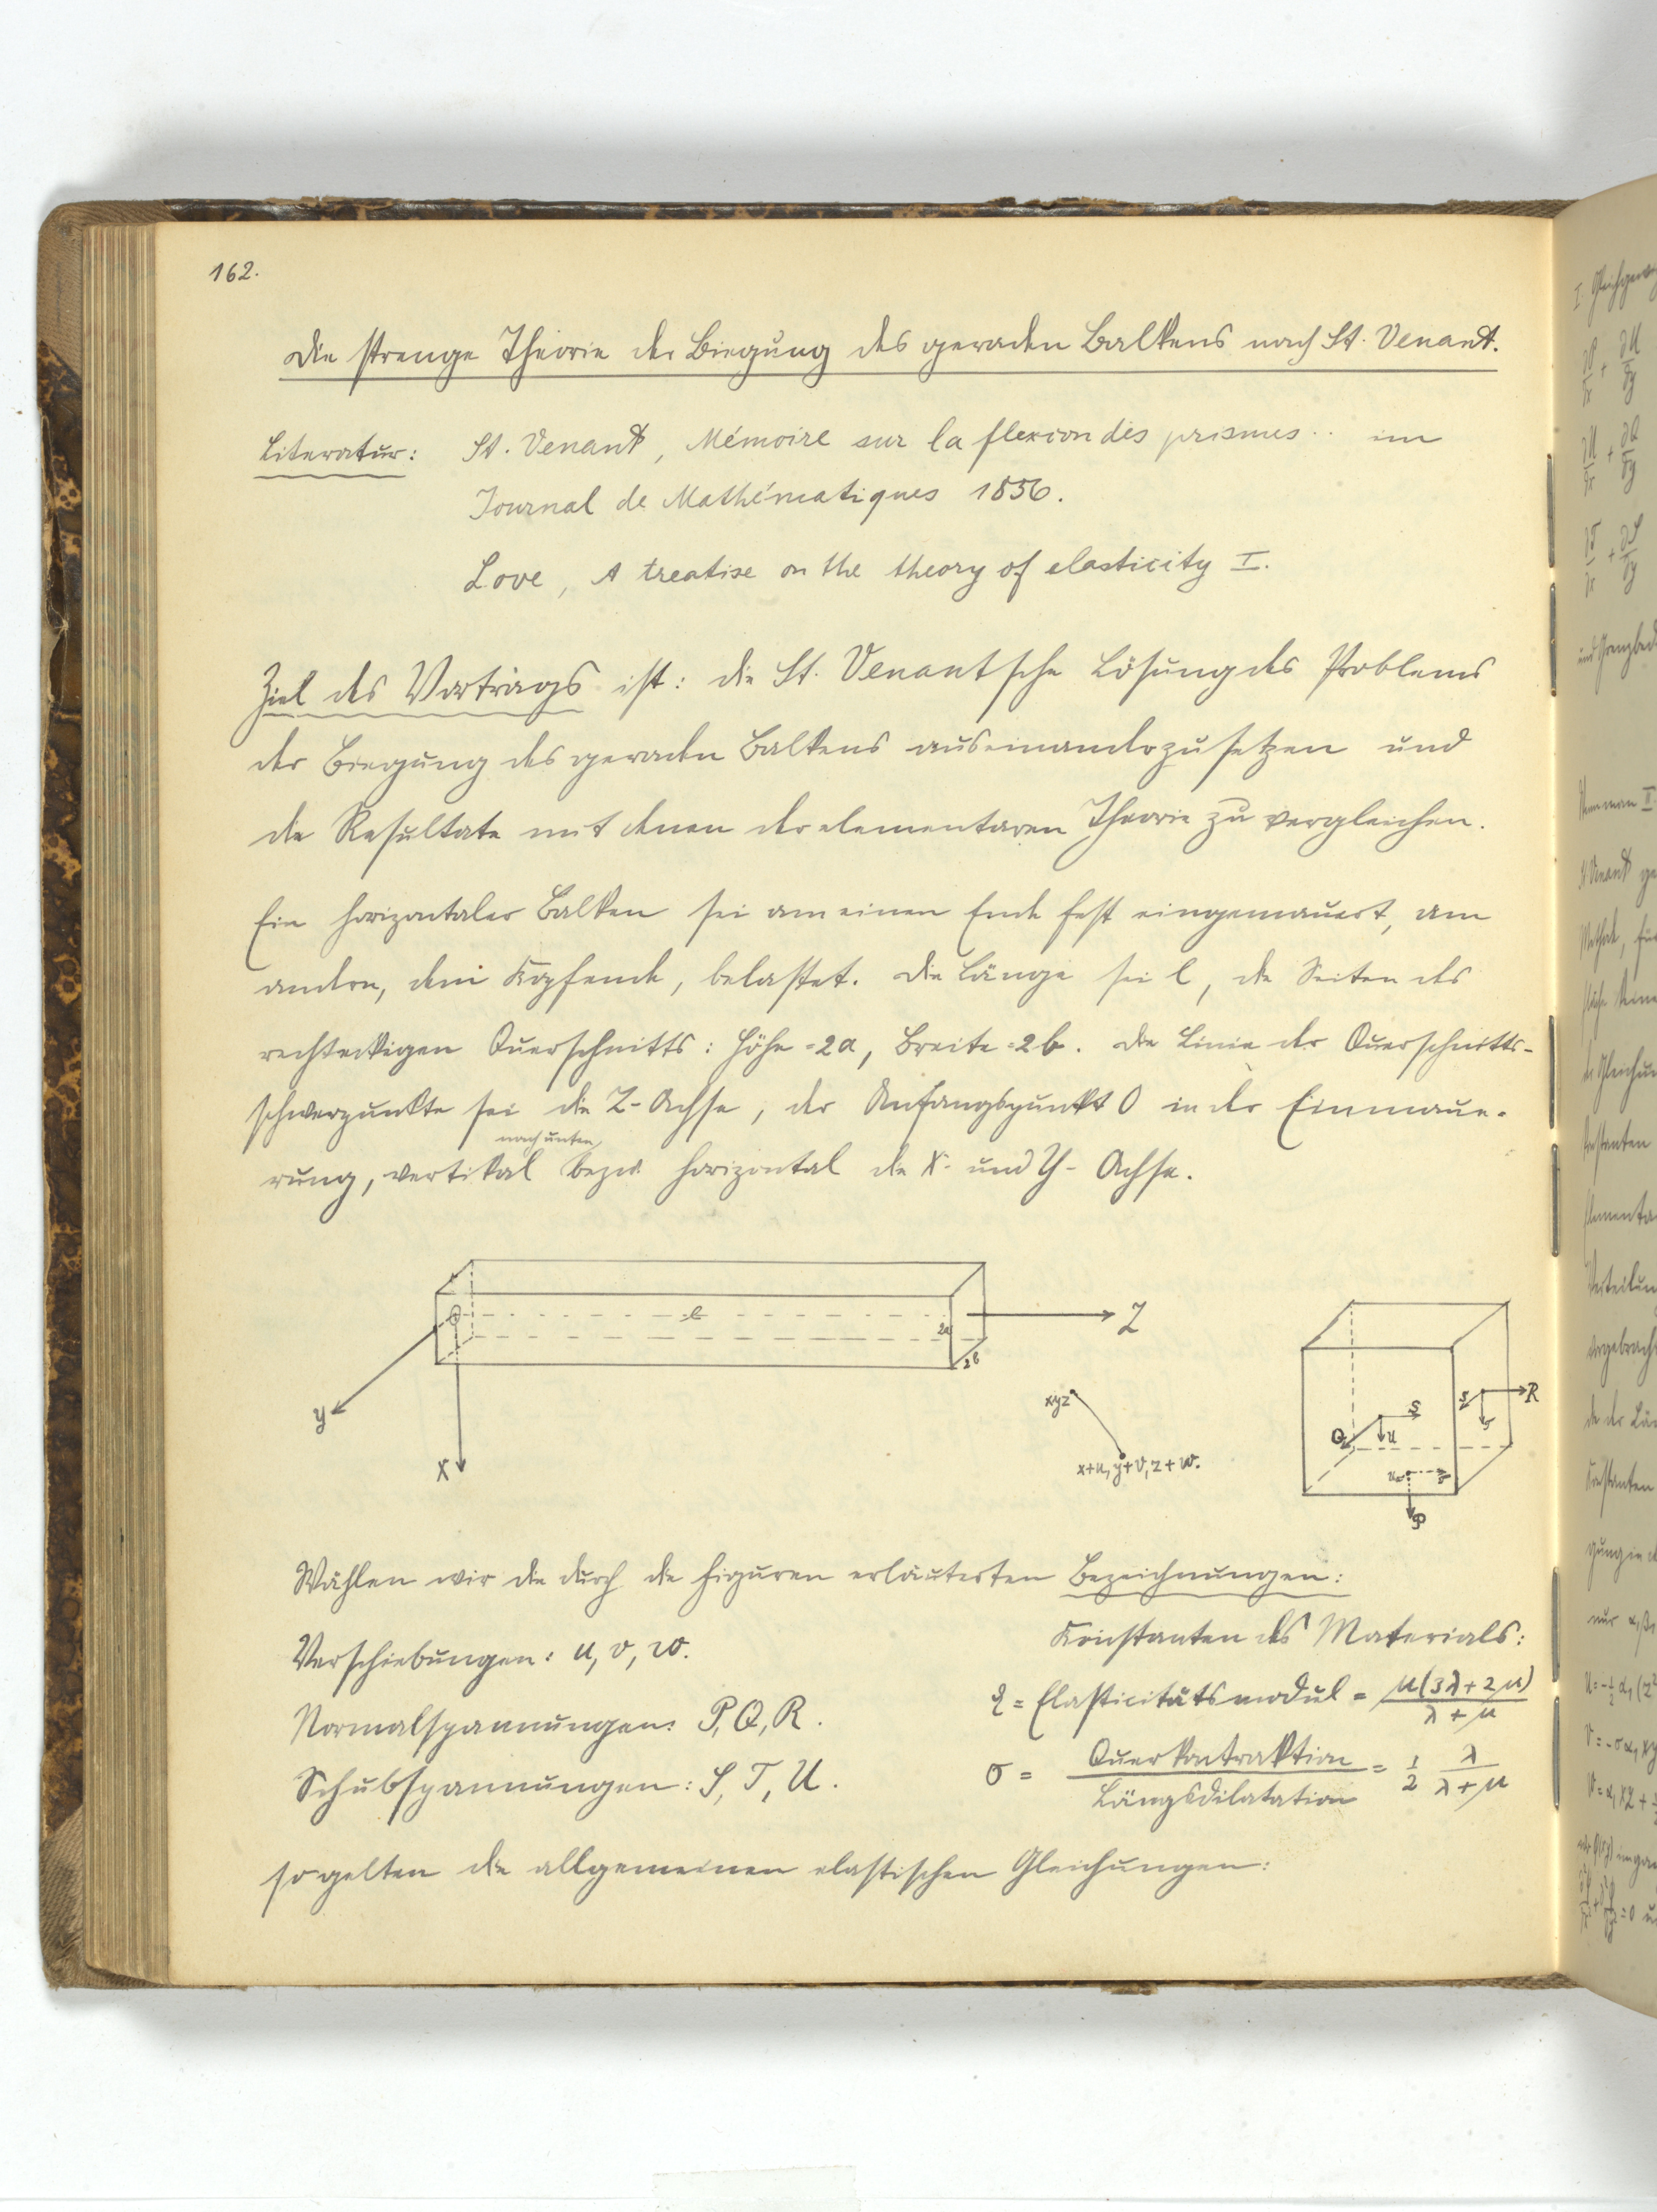 162.
Die strenge Theorie der Biegung des geraden Balkens nach St. Venant.
Literatur: St. Venant, Mémoire sur la flexion des prismes .. im
Journal de Mathématiques 1856.
Love, A treatise on the theory of elasticity I.
Ziel des Vortrags ist: die St. Venantsche Lösung des Problems
der Biegung des geraden Balkens auseinanderzusetzen und
die Resultate mit denen der elementaren Theorie zu vergleichen.
Ein horizontaler Balken sei am einen Ende fest eingemauert, am
andern, dem Kopfende, belastet. Die Länge sei l, die Seiten des
rechteckigen Querschnitts: Höhe = 2a, Breite = 2b. Die Linie der Querschnitts-
schwerpunkte sei die Z-Achse, der Anfangspunkt O in der Einmaue-
nach unten
rung, vertikal bezw. horizontal die X- und Y-Achse.
O
l
2a
2b
Z
Y
X
xyz
x+u, y+v, z+w.
Q
S
U
S
R
T
U
T
P
Wählen wir die durch die Figuren erläuterten Bezeichnungen:
Verschiebungen: u, v, w.
Normalspannungen: P, Q, R.
Schubspannungen: S, T, U.
Konstanten des Materials:
E = Elasticitätsmodul = μ(3λ+2μ) / λ+μ
σ = Querkontraktion / Längsdilatation = 1/2 λ / λ+μ
so gelten die allgemeinen elastischen Gleichungen: